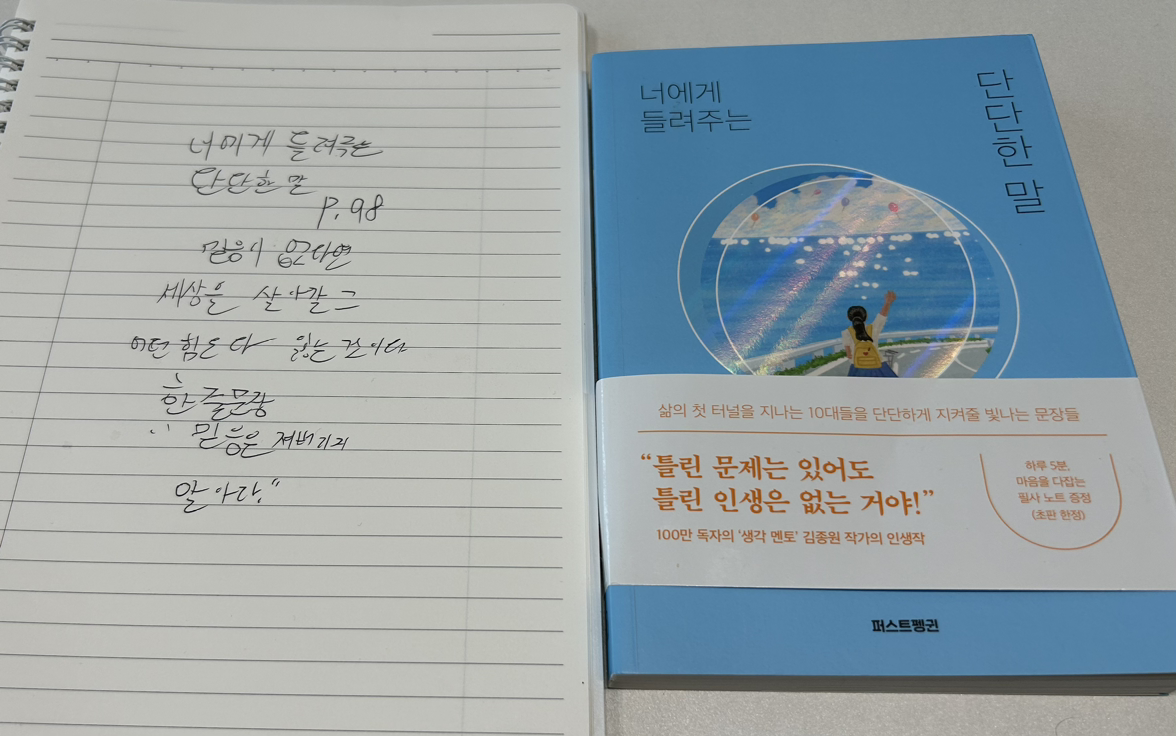 너에게 들려주는
단단한 말
P. 98
믿음이 없다면
세상을 살아갈 그
어떤 힘도 다 잃는 것이다
한 줄 문장
" 믿음은 져버리지
말아라."
너에게
들려주는
단단한 말
삶의 첫 터널을 지나는 10대들을 단단하게 지켜줄 빛나는 문장들
“틀린 문제는 있어도
틀린 인생은 없는 거야!”
100만 독자의 ‘생각 멘토’ 김종원 작가의 인생작
하루 5분,
마음을 다잡는
필사 노트 증정
(초판 한정)
퍼스트펭귄